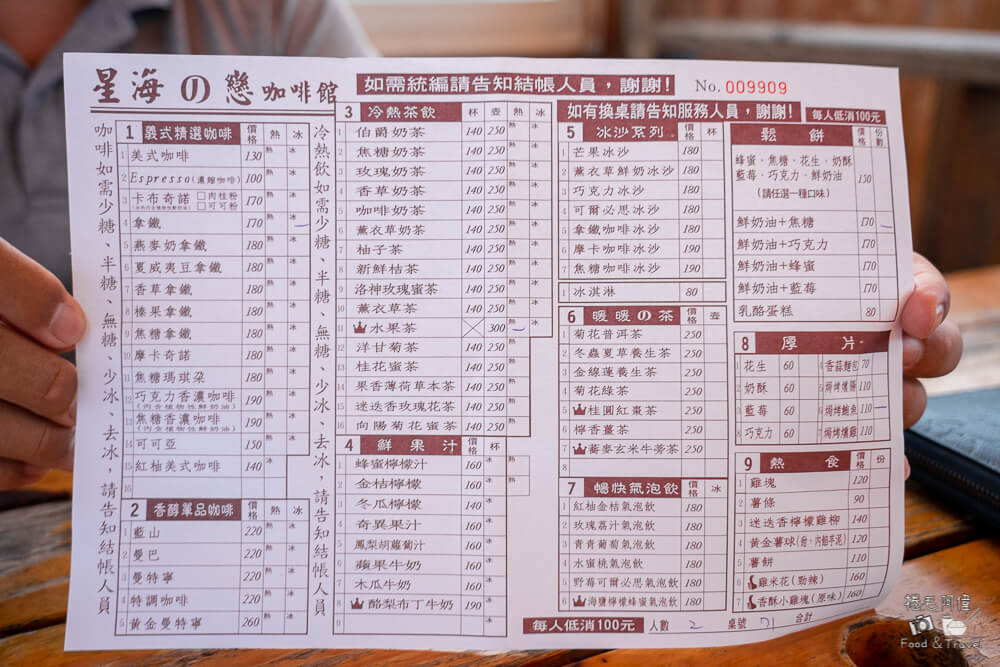 星海の戀咖啡館
如需統編請告知結帳人員，謝謝！
No. 009909
如有換桌請告知服務人員，謝謝！
每人低消100元
咖啡如需少糖、半糖、無糖、少冰、去冰，請告知結帳人員
1 義式精選咖啡 價格 熱 冰
1 美式咖啡 130 熱 冰
2 Espresso(濃縮咖啡) 100 熱
3 卡布奇諾 □肉桂粉 □可可粉 170 熱 冰
4 拿鐵 170 熱 冰
5 燕麥奶拿鐵 180 熱 冰
6 夏威夷豆拿鐵 180 熱 冰
7 香草拿鐵 180 熱 冰
8 榛果拿鐵 180 熱 冰
9 焦糖拿鐵 180 熱 冰
10 摩卡奇諾 180 熱 冰
11 焦糖瑪琪朵 180 熱 冰
12 巧克力香濃咖啡 190 熱 冰
(內含植物性鮮奶油)
13 焦糖香濃咖啡 190 熱 冰
(內含植物性鮮奶油)
14 可可亞 150 熱 冰
15 紅柚美式咖啡 140 冰
16
2 香醇單品咖啡 價格 熱 冰
1 藍山 220 熱 冰
2 曼巴 220 熱 冰
3 曼特寧 220 熱 冰
4 特調咖啡 220 熱 冰
5 黃金曼特寧 260 熱 冰
冷熱飲如需少糖、半糖、無糖、少冰、去冰，請告知結帳人員
3 冷熱茶飲 杯 壺 熱 冰
1 伯爵奶茶 140 250 熱 冰
2 焦糖奶茶 140 250 熱 冰
3 玫瑰奶茶 140 250 熱 冰
4 香草奶茶 140 250 熱 冰
5 咖啡奶茶 140 250 熱 冰
6 薰衣草奶茶 140 250 熱 冰
7 柚子茶 140 250 熱 冰
8 新鮮桔茶 140 250 熱 冰
9 洛神玫瑰蜜茶 140 250 熱 冰
10 薰衣草茶 140 250 熱 冰
11 水果茶 300 熱 冰
12 洋甘菊茶 140 250 熱
13 桂花蜜茶 140 250 熱
14 果香薄荷草本茶 140 250 熱
15 迷迭香玫瑰花茶 140 250 熱
16 向陽菊花蜜茶 140 250 熱
4 鮮果汁 價格 杯
1 蜂蜜檸檬汁 160 冰 熱
2 金桔檸檬 160 冰 熱
3 冬瓜檸檬 140 冰
4 奇異果汁 160 冰
5 鳳梨胡蘿蔔汁 160 冰
6 蘋果牛奶 160 冰
7 木瓜牛奶 160 冰
8 酪梨布丁牛奶 190 冰
9
5 冰沙系列 價格 杯
1 芒果冰沙 180
2 薰衣草鮮奶冰沙 180
3 巧克力冰沙 180
4 可爾必思冰沙 180
5 拿鐵咖啡冰沙 190
6 摩卡咖啡冰沙 190
7 焦糖咖啡冰沙 190
1 冰淇淋 80
6 暖暖の茶 價格 壺
1 菊花普洱茶 250
2 冬蟲夏草養生茶 250
3 金線蓮養生茶 250
4 菊花綠茶 250
5 桂圓紅棗茶 250
6 檸香薑茶 250
7 蕎麥玄米牛蒡茶 250
8
7 暢快氣泡飲 價格 冰
1 紅柚金桔氣泡飲 180
2 玫瑰荔汁氣泡飲 180
3 青青葡萄氣泡飲 180
4 水蜜桃氣泡飲 180
5 野莓可爾必思氣泡飲 180
6 海鹽檸檬蜂蜜氣泡飲 180
鬆餅 價格 份數
蜂蜜、焦糖、花生、奶酥
藍莓、巧克力、鮮奶油 150
(請任選一種口味)
鮮奶油＋焦糖 170
鮮奶油＋巧克力 170
鮮奶油＋蜂蜜 170
鮮奶油＋藍莓 170
乳酪蛋糕 80
8 厚片
1 花生 60 4 香蒜麵包 70
2 奶酥 60 5 焗烤燻腸 110
3 藍莓 60 6 焗烤鮪魚 110
8 巧克力 60 7 焗烤燻雞 110
9 熱食 價格 份
1 雞塊 120
2 薯條 90
3 迷迭香檸檬雞柳 140
4 黃金薯球(甜，內餡芋泥) 120
5 薯餅 110
6 雞米花(勁辣) 160
7 香酥小雞塊(原味) 160
每人低消100元 人數 2 桌號 71 合計
橘毛阿偉
Food & Travel